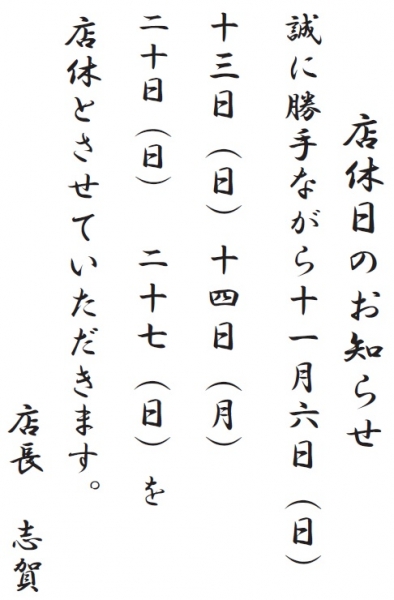 店休日のお知らせ
誠に勝手ながら十一月六日（日）
十三日（日）　十四日（月）
二十日（日）　二十七（日）を
店休とさせていただきます。
店長　志賀